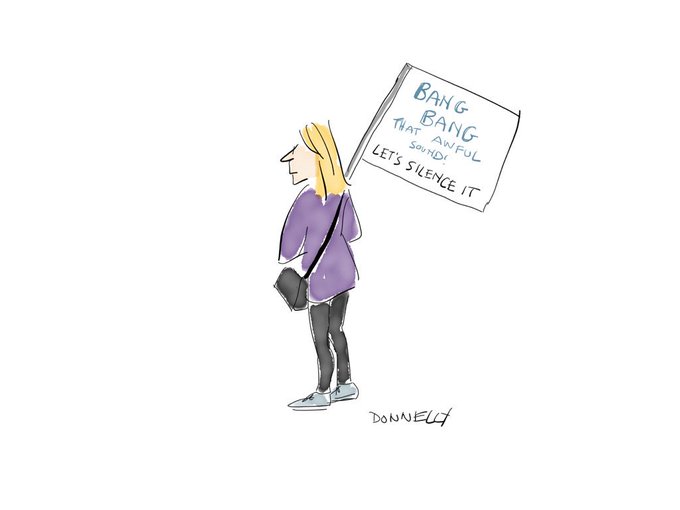 BANG
BANG
THAT AWFUL
SOUND!
LET'S SILENCE IT
DONNELLY